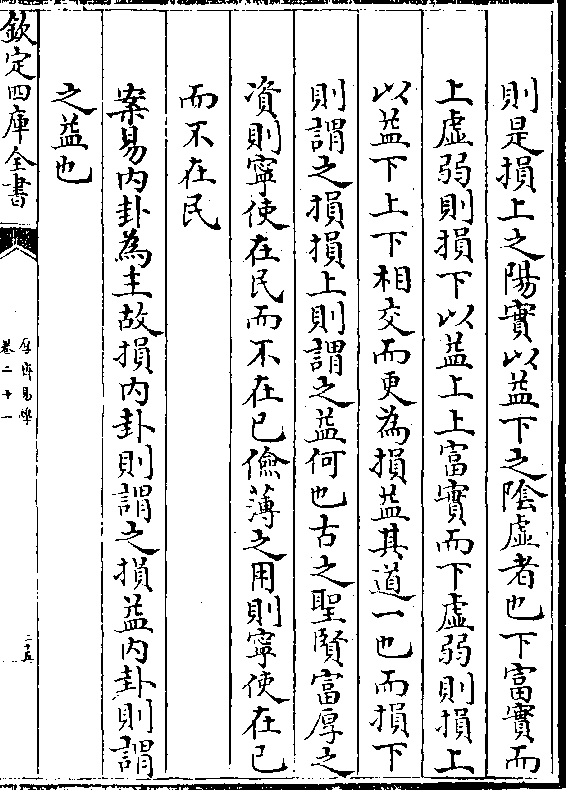 則是損上之陽實以益下之陰虛者也下富實而
上虛弱則損下以益上上富實而下虛弱則損上
以益下上下相交而更為損益其道一也而損下
則謂之損損上則謂之益何也古之聖賢富厚之
資則寧使在民而不在已儉薄之用則寧使在已
而不在民
案易内卦為主故損内卦則謂之損益内卦則謂
之益也
欽定四庫全書
厚齋易學
卷二十一
二十五